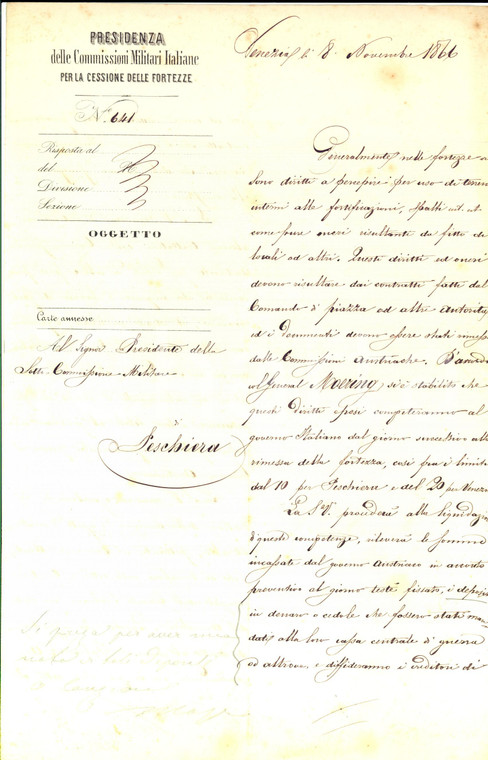 PRESIDENZA
delle Commissioni Militari Italiane
PER LA CESSIONE DELLE FORTEZZE
N.º 641
Risposta al
del
Divisione
Sezione
OGGETTO
Carte annesse
Al Signor Presidente della
Sotto Commissione Militare
Peschiera
Venezia li 8 Novembre 1866
Generalmente nelle fortezze
sono diritti a percepire per uso di terreni
interni alle fortificazioni, spalti
come pure oneri risultanti da fitto di
locali ad altri. Questi diritti ed oneri
devono risultare dai contratti fatti dal
Comando di piazza od altre Autorità
ed i documenti devono essere stati rimessi
dalle Commissioni Austriache. D'accordo
col General Moering si è stabilito che
questi diritti e pesi competeranno al
governo Italiano dal giorno successivo alla
rimessa della fortezza, così
dal 10 per Peschiera e del 20 per Venezia
La S.V. procederà alla liquidazione
di queste competenze, rileverà le somme
incassate dal governo Austriaco in acconto
preventivo al giorno testé fissato, i depositi
in denaro o cedole che fossero stati man
dati alla loro cassa centrale di guerra
od altrove, e diffideranno i creditori di
Si prega per aver una